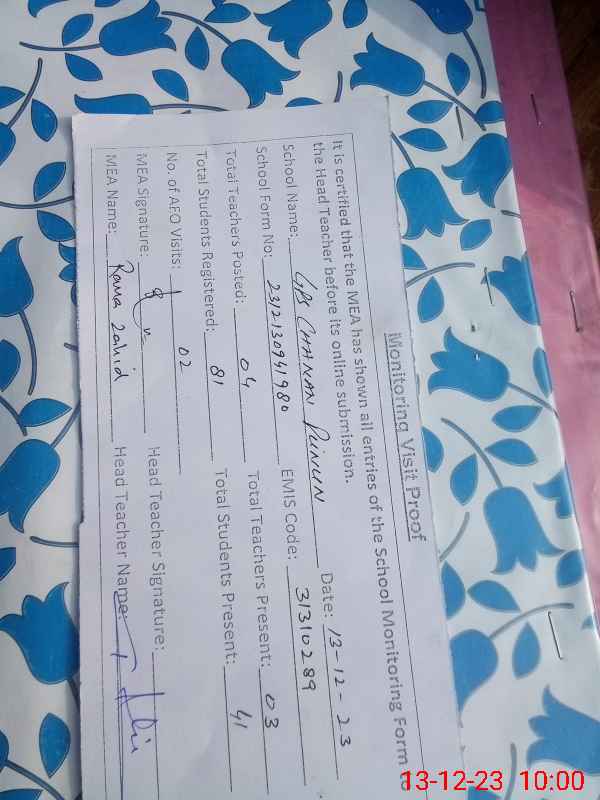 Monitoring Visit Proof
It is certified that the MEA has shown all entries of the School Monitoring Form to
the Head Teacher before its online submission.
Date: 13-12-23
School Name: GPS CHANAN
School Form No: 23/2130941980 EMIS Code: 31310289
Total Teachers Posted: 04 Total Teachers Present: 03
Total Students Registered: 81 Total Students Present: 41
No. of AEO Visits: 02
MEA Signature: Head Teacher Signature:
MEA Name: Rana Zahid Head Teacher Name:
13-12-23 10:00